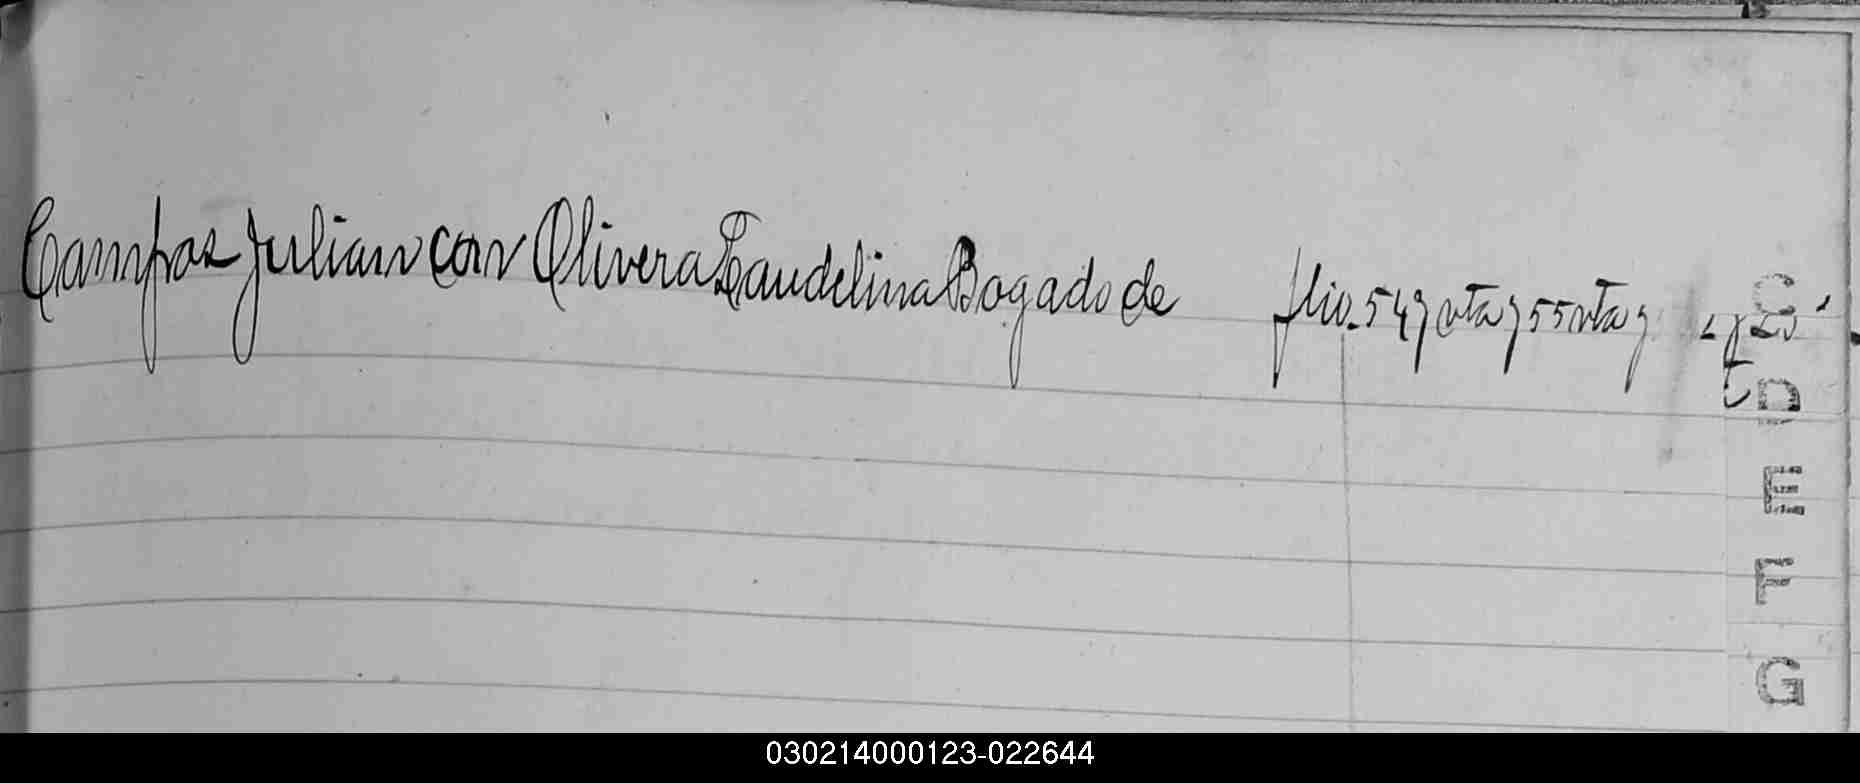 Campos Julian con Olivera Laudelina Bogado de flio. 54 y vta y 55 vta y
C
D
E
F
G
030214000123-022644